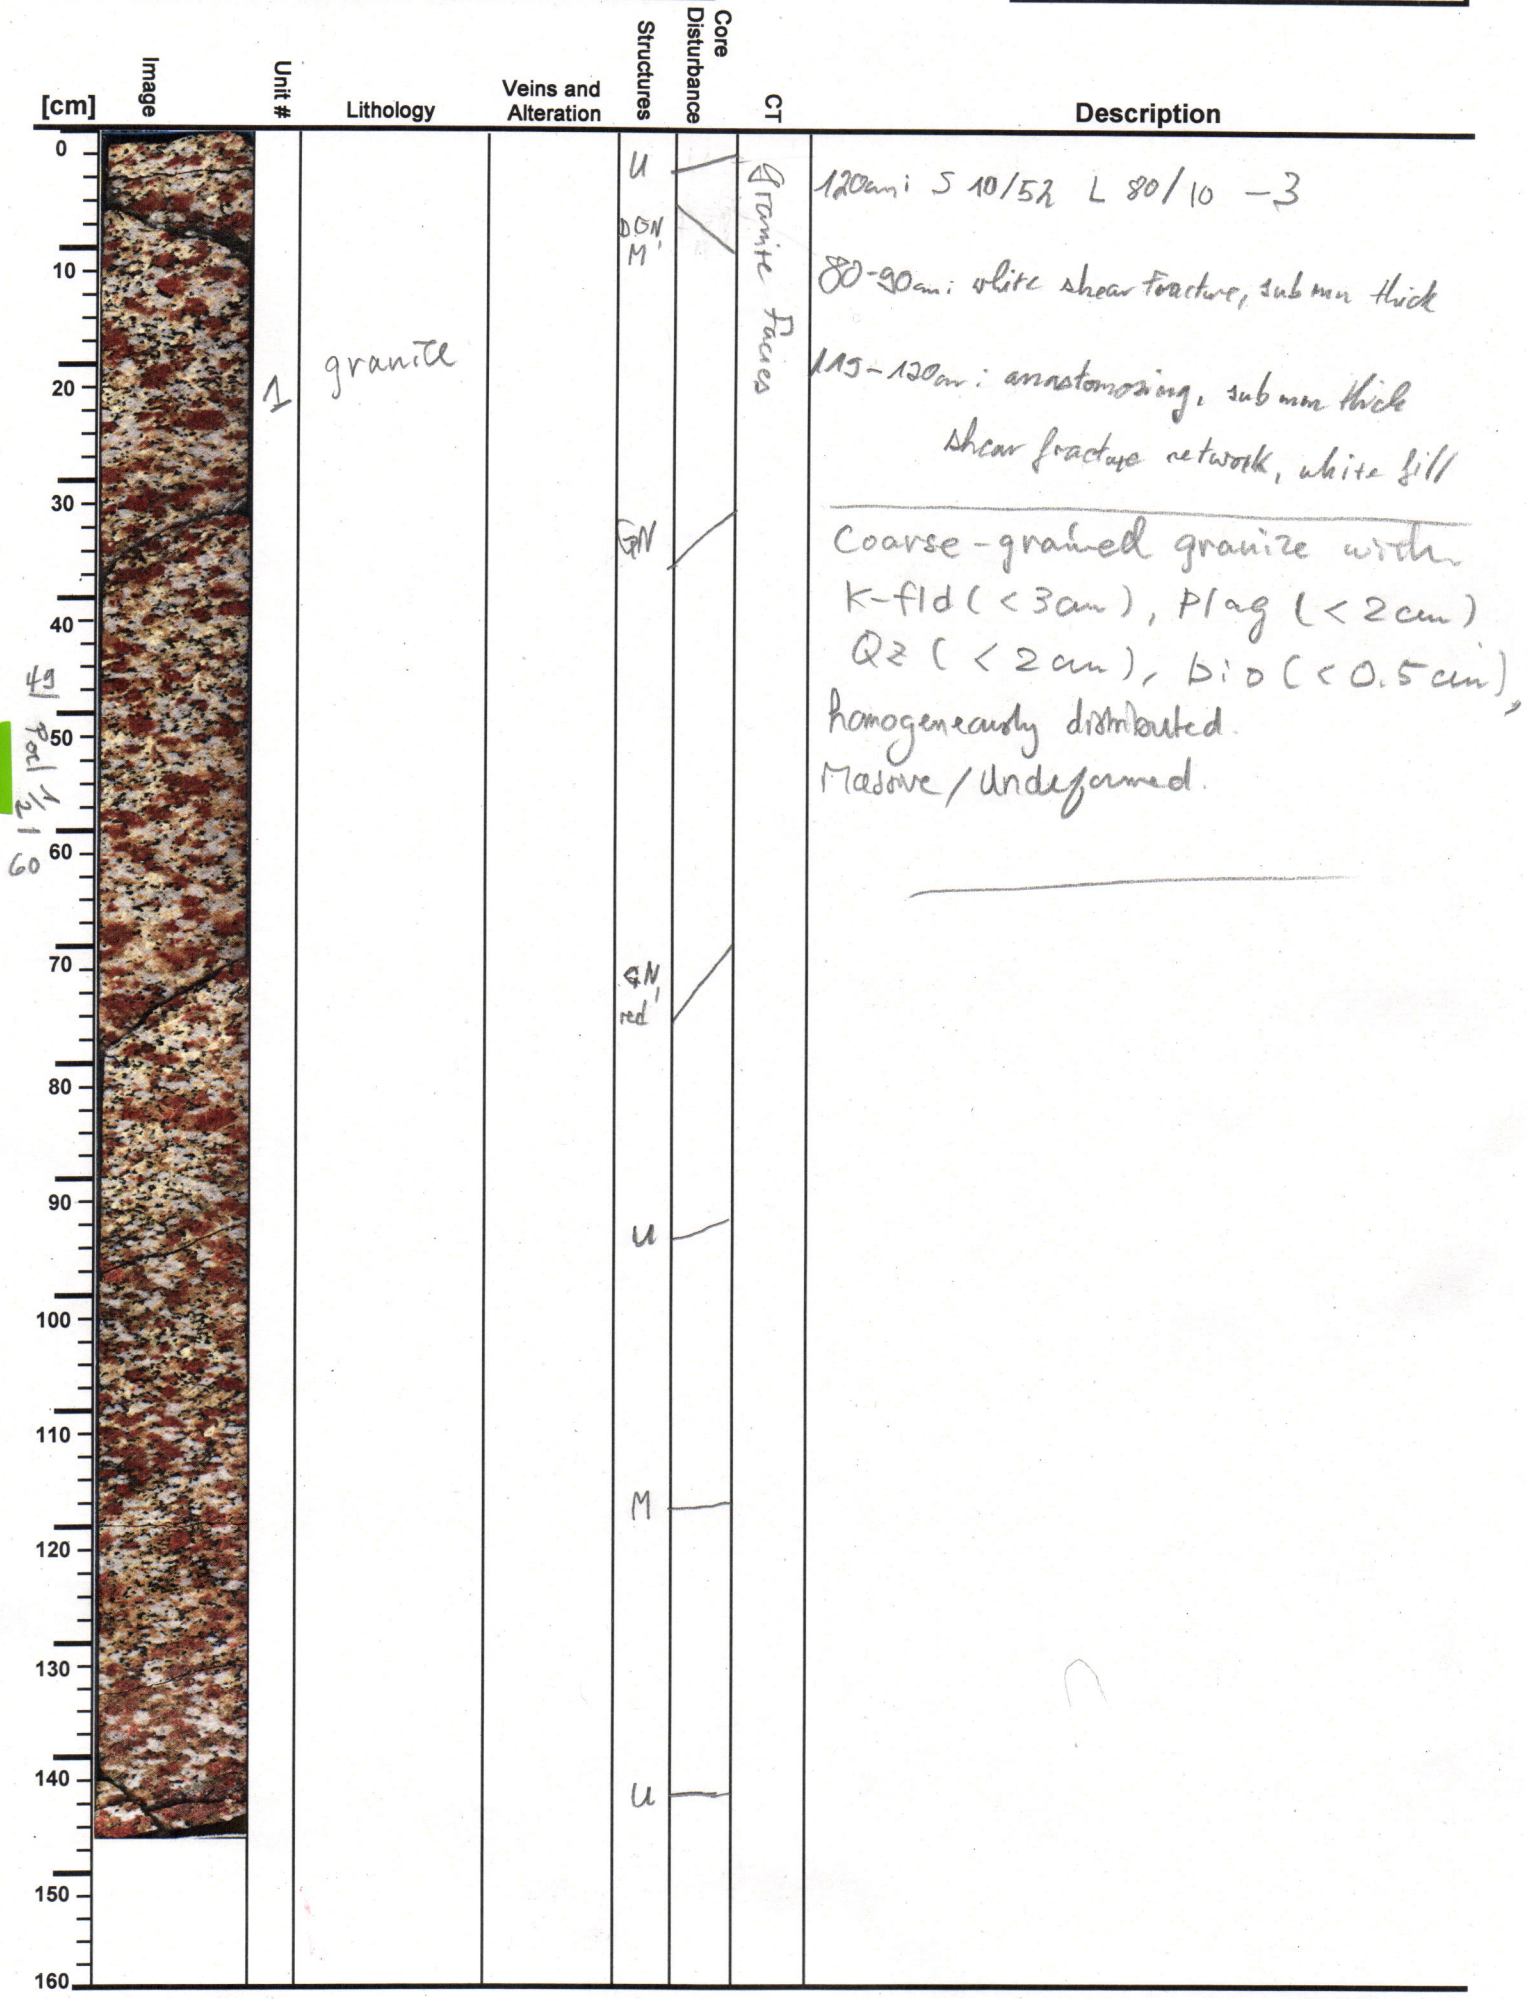 [cm]
Image
Unit #
Lithology
Veins and
Alteration
Structures
Core
Disturbance
CT
Description
0
10
20
30
40
50
60
70
80
90
100
110
120
130
140
150
160
49
1/2
60
1
granite
U
M
GN
GN,
red
U
M
U
granite facies
120cm: S 10/52 L 80/10 -3
80-90cm: white shear fracture, sub mm thick
119-120cm: anastomosing, sub mm thick
shear fracture network, white fill
Coarse-grained granite with
K-fld (<3cm), Plag (<2cm)
Qz (<2cm), bio (<0.5cm),
homogeneously distributed.
Massive/Undeformed.